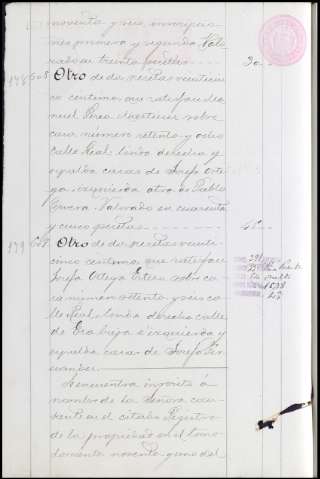 noventa y seis, inscripcio
nes primera y segunda. Valo
rado en treinta pesetas 30
178 Otro de dos pesetas veinticin
co centimos que satisface Ma
nuel Perez sobre
casa número setenta y ocho
Calle Real, linda derecha y
espalda casas de Josefa Orte
ga, izquierda otra de Pablo
Valorado en cuarenta
y cinco pesetas 45
179 Otro de dos pesetas veinti
cinco centimos que satisface
Josefa Ortega sobre ca
sa número setenta y seis ca
lle Real, linda derecha calle
de baja é izquierda y
espalda casas de Josefa

Se encuentra inscrito á
nombre de la Señora cau
sante en el citado Registro
de la propiedad en el tomo
doscientos noventa y uno del